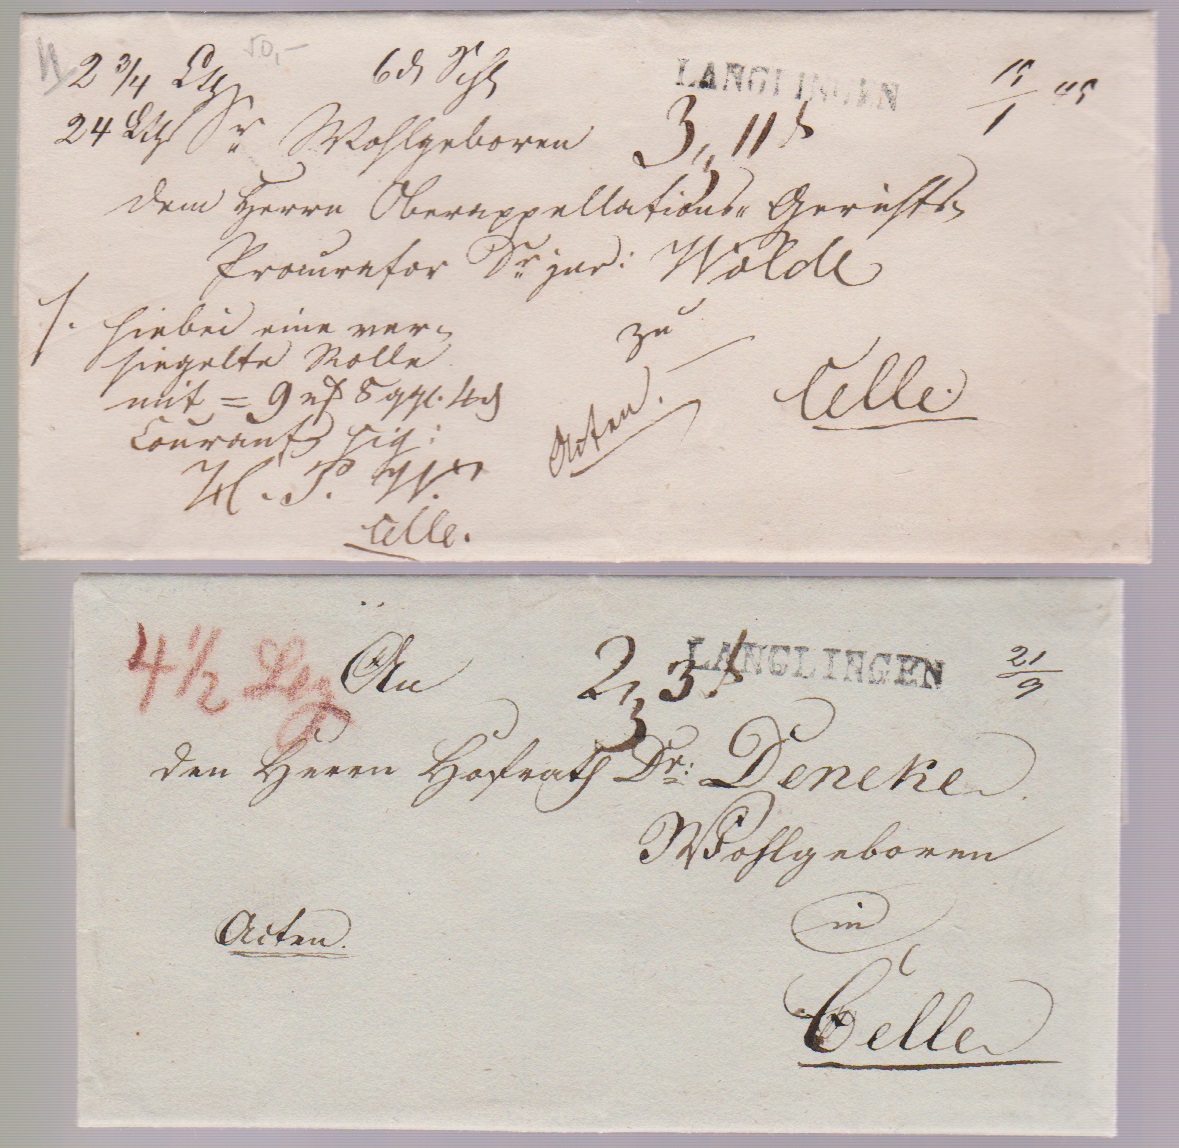 50,-
2 3/4 Lth 6 d Schl LANGLINGEN 15/1 45
24 Lth Sr Wohlgeboren 3,, 11
dem Herrn Oberappellations- Gerichts-
Procurator Dr jur: Wolde
hiebei eine ver-
siegelte Rolle
mit = 9 8 ggl. 4 d
Courant sig:
zu
Celle.
Acten.
Celle.
4 1/2 Lth An 2, 3 LANGLINGEN 21/9
3
den Herrn Hofrath Dr: Deneke
Wohlgeboren
Acten. in
Celle